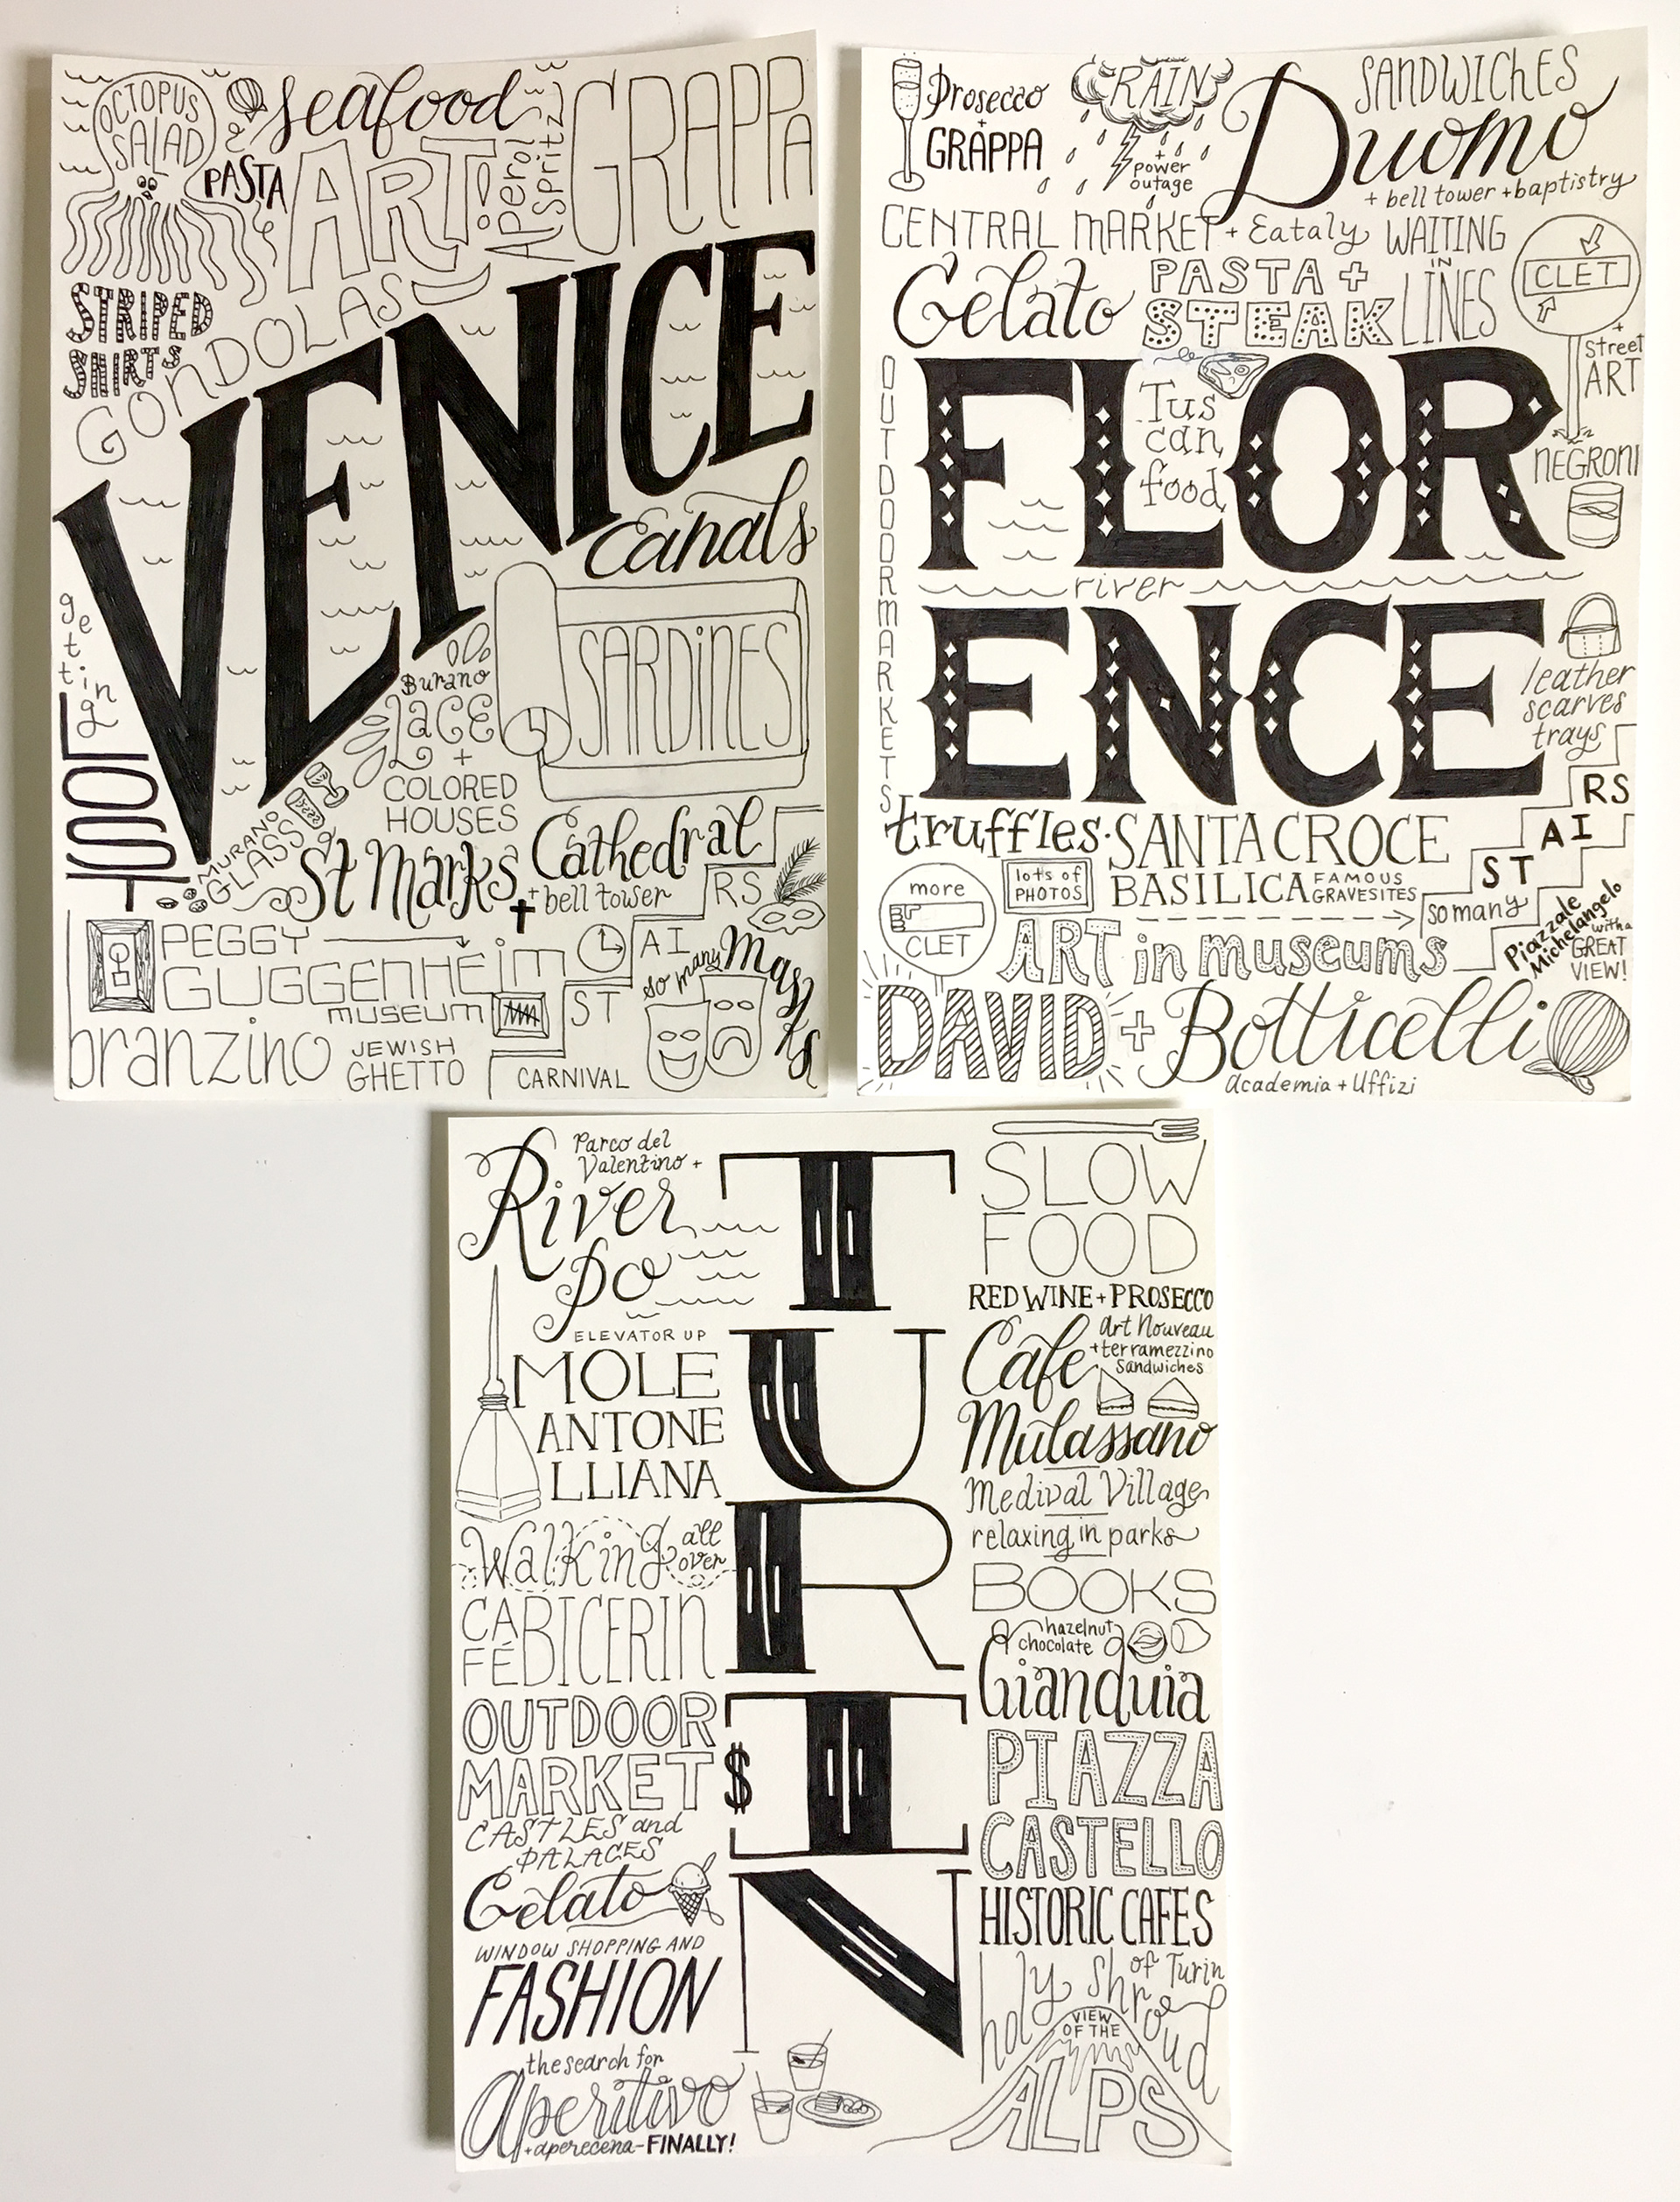 OCTOPUS
SALAD
seafood
PASTA
ART!
Aperol
Spritz
GRAPPA
STRIPED
SHIRTS
GONDOLAS
VENICE
canals
getting
LOST
Burano
LACE
+
COLORED
HOUSES
SARDINES
MURANO
GLASS
St Marks
Cathedral
+ bell tower
ST AI RS
PEGGY
GUGGENHEIM
MUSEUM
so many Masks
branzino
JEWISH
GHETTO
CARNIVAL
Prosecco
+
GRAPPA
RAIN
+
power
outage
SANDWICHES
Duomo
+ bell tower + baptistry
CENTRAL MARKET + Eataly
WAITING
IN
LINES
CLET
+
Street
ART
Gelato
PASTA +
STEAK
OUTDOOR MARKETS
FLOR
Tus
can
food
NEGRONI
river
ENCE
leather
scarves
trays
truffles.
SANTA CROCE
BASILICA
FAMOUS
GRAVESITES
so many
ST AI RS
more
CLET
lots of
PHOTOS
ART in museums
Piazzale
Michelangelo
with a
GREAT
VIEW!
DAVID + Botticelli
Academia + Uffizi
Parco del
Valentino +
River
Po
ELEVATOR UP
MOLE
ANTONE
LLIANA
Walking all
over
CA
FÉ
BICERIN
OUTDOOR
MARKET $
CASTLES and
PALACES
Gelato
WINDOW SHOPPING AND
FASHION
the search for
Aperitivo
+ aperecena - FINALLY!
TURIN
SLOW
FOOD
RED WINE + PROSECCO
Cafe
Art Nouveau
+ terramezzino
Sandwiches
Mulassano
Medival Village
relaxing in parks
BOOKS
hazelnut
chocolate
Gianduia
PIAZZA
CASTELLO
HISTORIC CAFES
holy Shroud
of Turin
VIEW
OF THE
ALPS